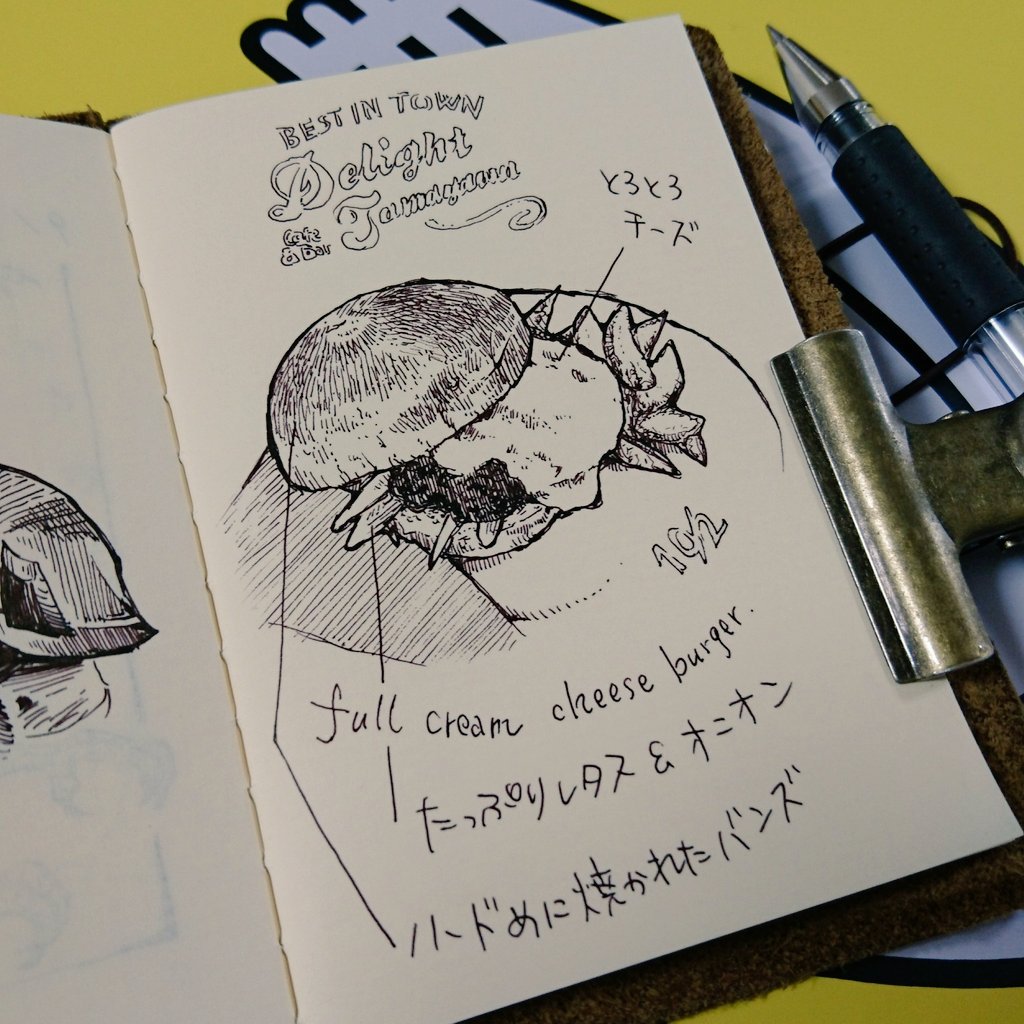 BEST IN TOWN
Delight
Tamayawa
Cafe
& Bar
とろとろ
チーズ
full cream cheese burger.
たっぷりレタス & オニオン
ハードめに焼かれたバンズ